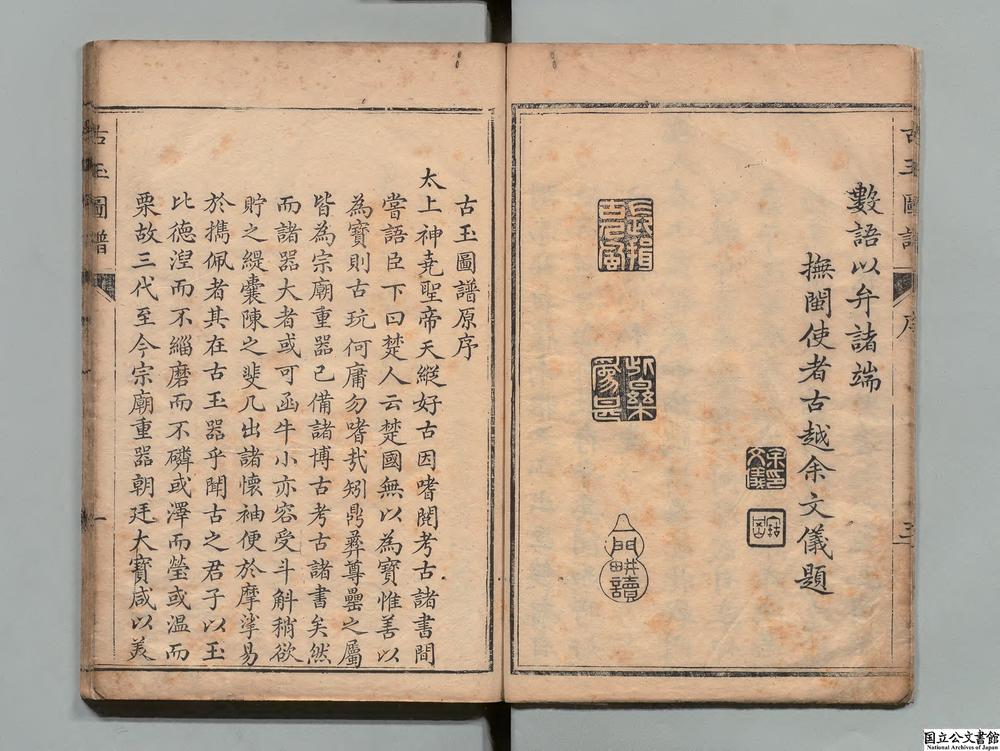 數語以弁諸端
撫閩使者古越余文儀題
余印
文儀
八門
畊讀
古玉圖譜
序
三
古玉圖譜原序
太上神堯聖帝天縱好古因嗜閱考古諸書間
嘗語臣下曰楚人云楚國無以為寶惟善以
為寶則古玩何庸勿嗜㢤矧鼎彝尊罍之屬
皆為宗廟重器已備諸博古考古諸書矣然
而諸器大者或可函牛小亦容受斗斛稍欲
貯之緹囊陳之斐几出諸懷袖便於摩挲易
於攜佩者其在古玉器乎聞古之君子以玉
比德湼而不緇磨而不磷或澤而瑩或溫而
栗故三代至今宗廟重器朝廷大寶咸以美
古玉圖譜
一
国立公文書館
National Archives of Japan